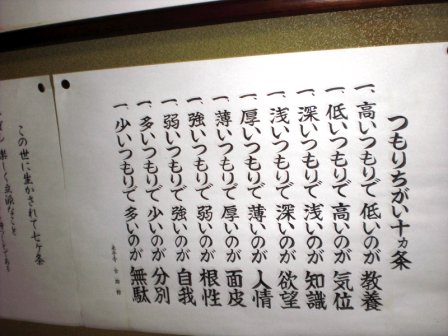 つもりちがい十ヵ条
一、高いつもりで 低いのが 教養
一、低いつもりで 高いのが 気位
一、深いつもりで 浅いのが 知識
一、浅いつもりで 深いのが 欲望
一、厚いつもりで 薄いのが 人情
一、薄いつもりで 厚いのが 面皮
一、強いつもりで 弱いのが 根性
一、弱いつもりで 強いのが 自我
一、多いつもりで 少いのが 分別
一、少いつもりで 多いのが 無駄
この世に生かされて七ヶ条